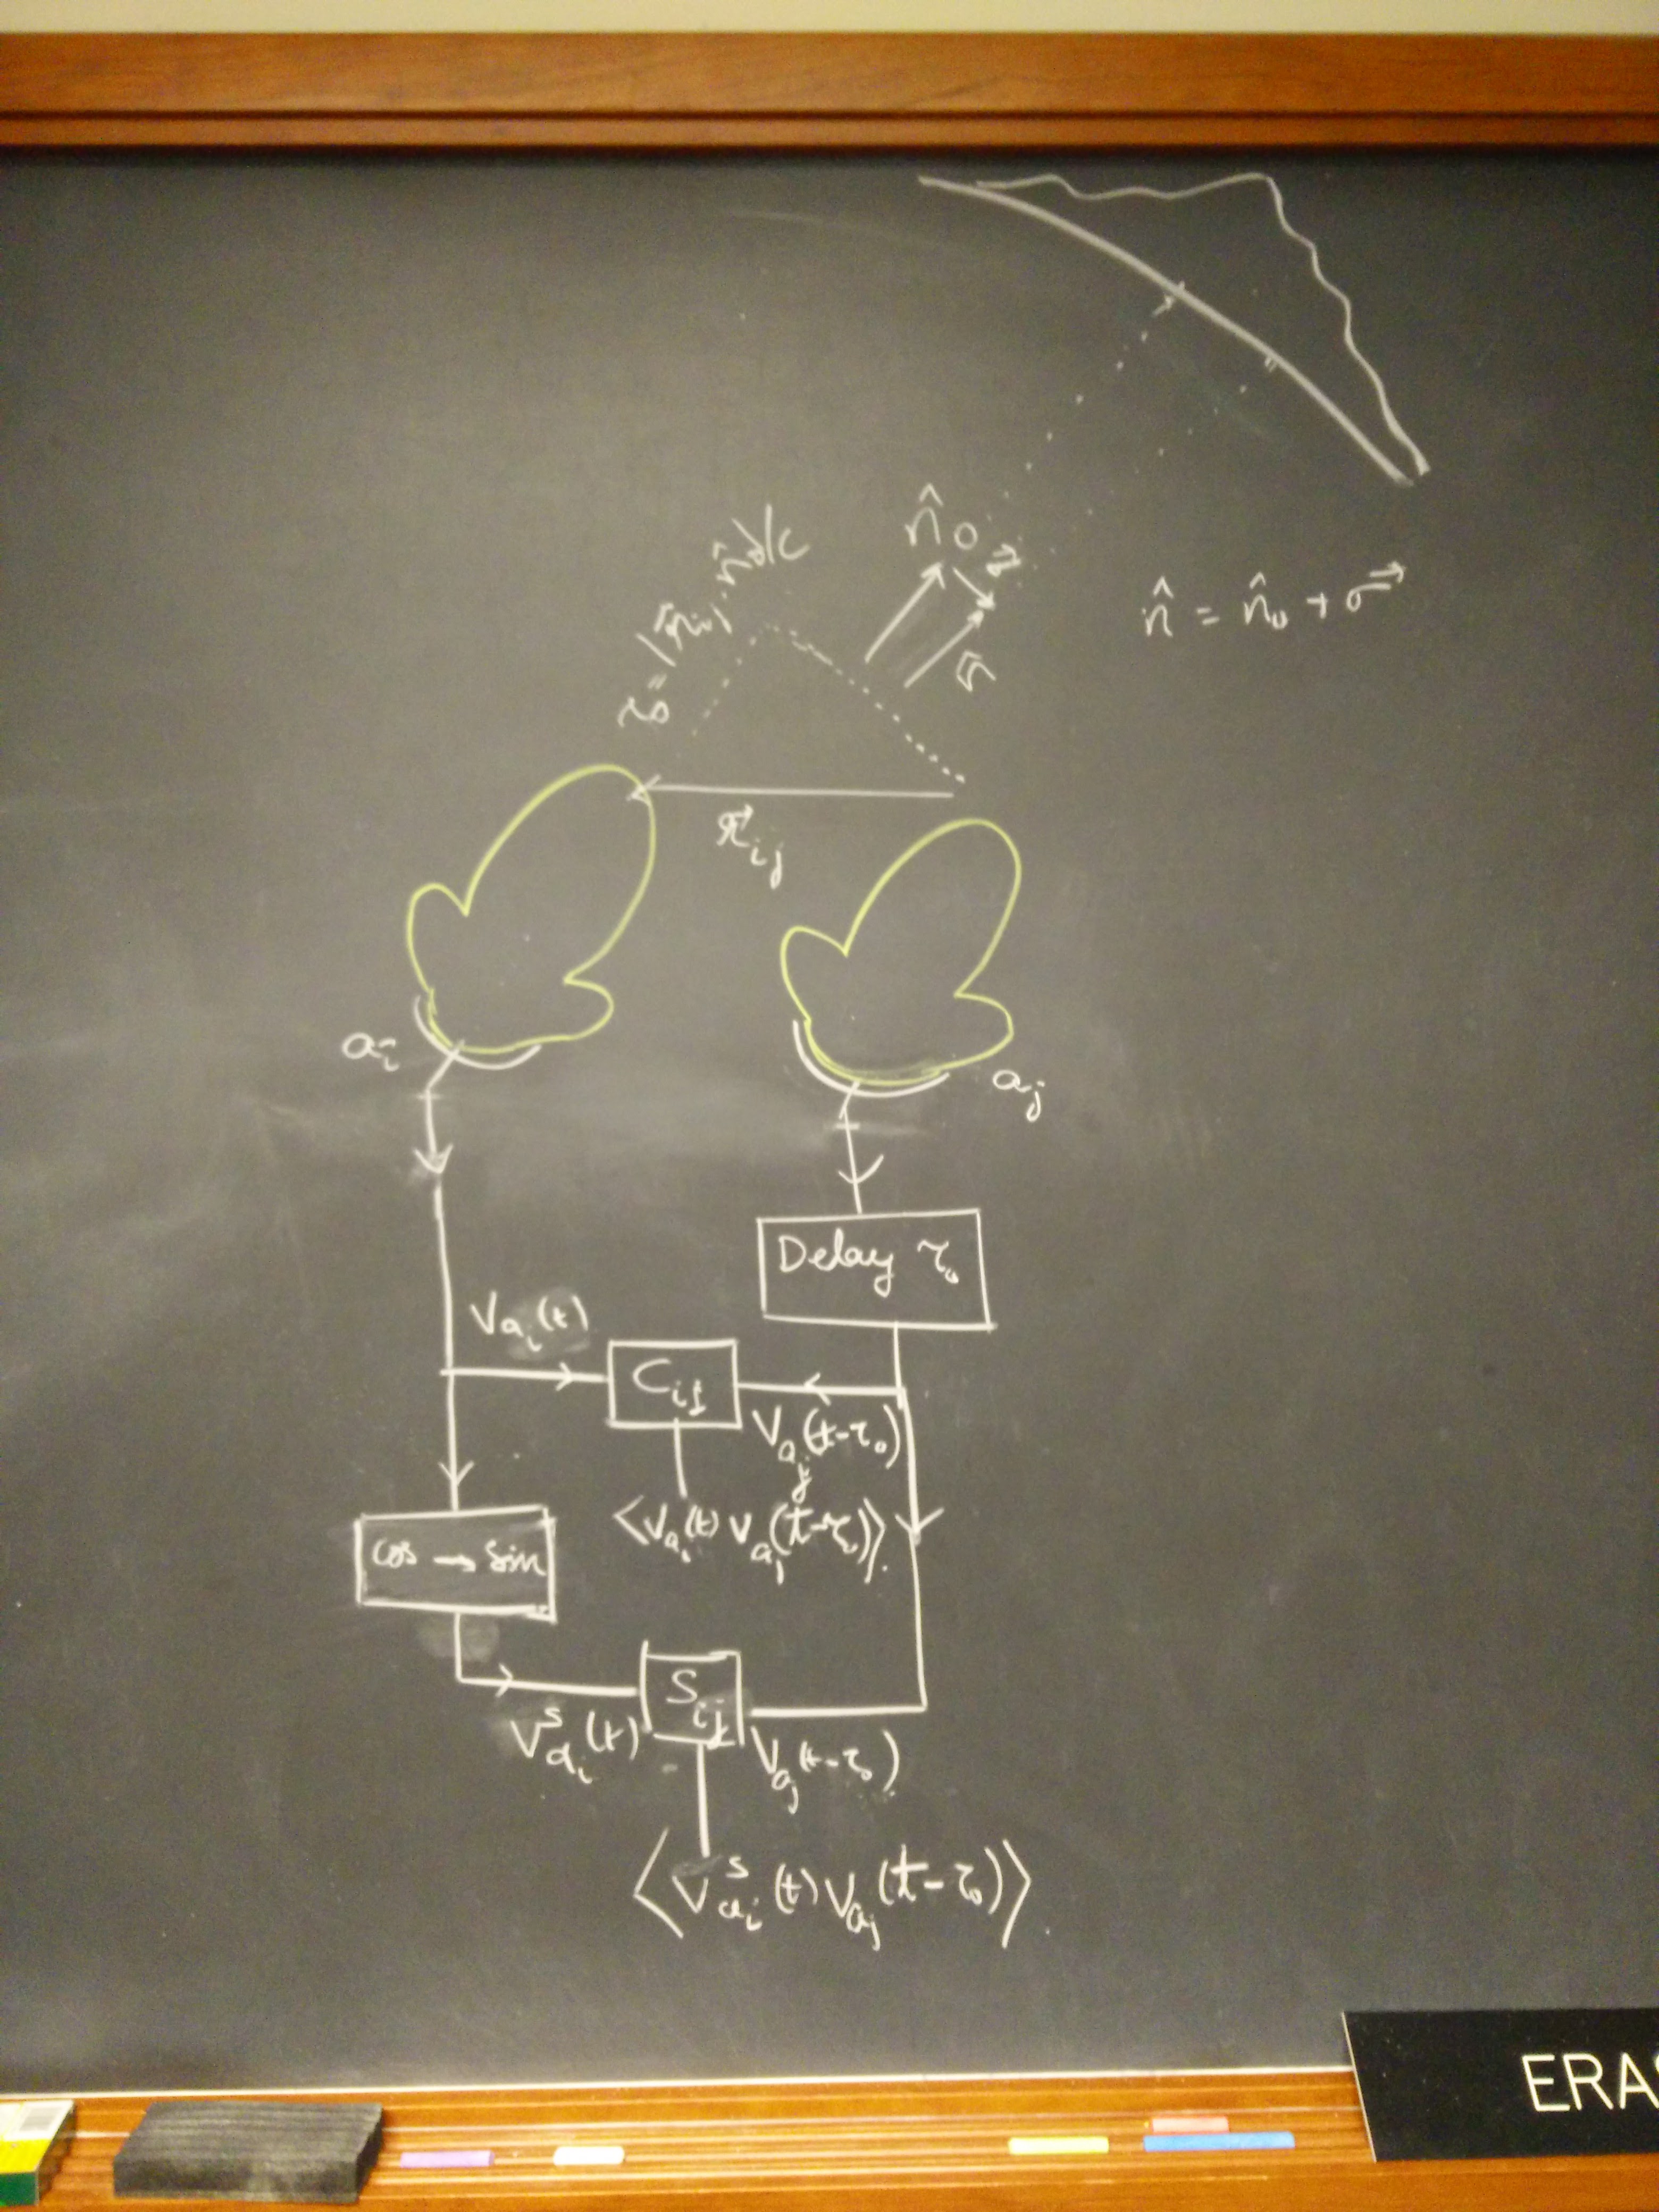 n̂₀
σ⃗
n̂
n̂ = n̂₀ + σ⃗
τ₀
r⃗ᵢⱼ
aᵢ
aⱼ
Delay τ₀
V_aᵢ(t)
Cᵢⱼ
V_aⱼ(t-τ₀)
⟨V_aᵢ(t) V_aⱼ(t-τ₀)⟩.
cos → sin
Sᵢⱼ
Vˢ_aᵢ(t)
V_aⱼ(t-τ₀)
⟨Vˢ_aᵢ(t) V_aⱼ(t-τ₀)⟩.
ERAS